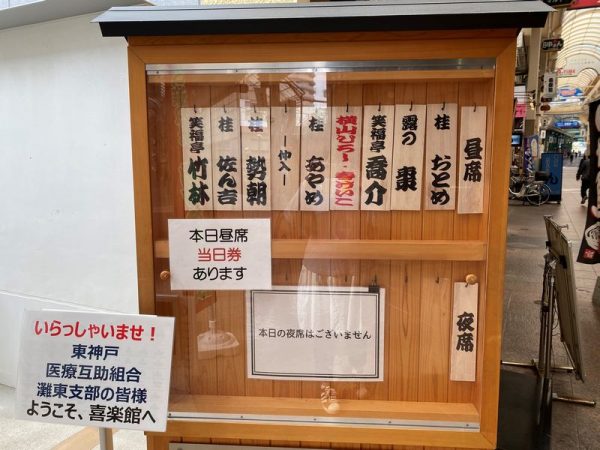 昼席
桂 おとめ
露の 棗
笑福亭 喬介
横山ひろし・春けいこ
桂 あやめ
―仲入―
桂 勢朝
桂 佐ん吉
笑福亭 竹林
本日昼席
当日券
あります
夜席
本日の夜席はございません
いらっしゃいませ!
東神戸
医療互助組合
灘東支部の皆様
ようこそ、喜楽館へ